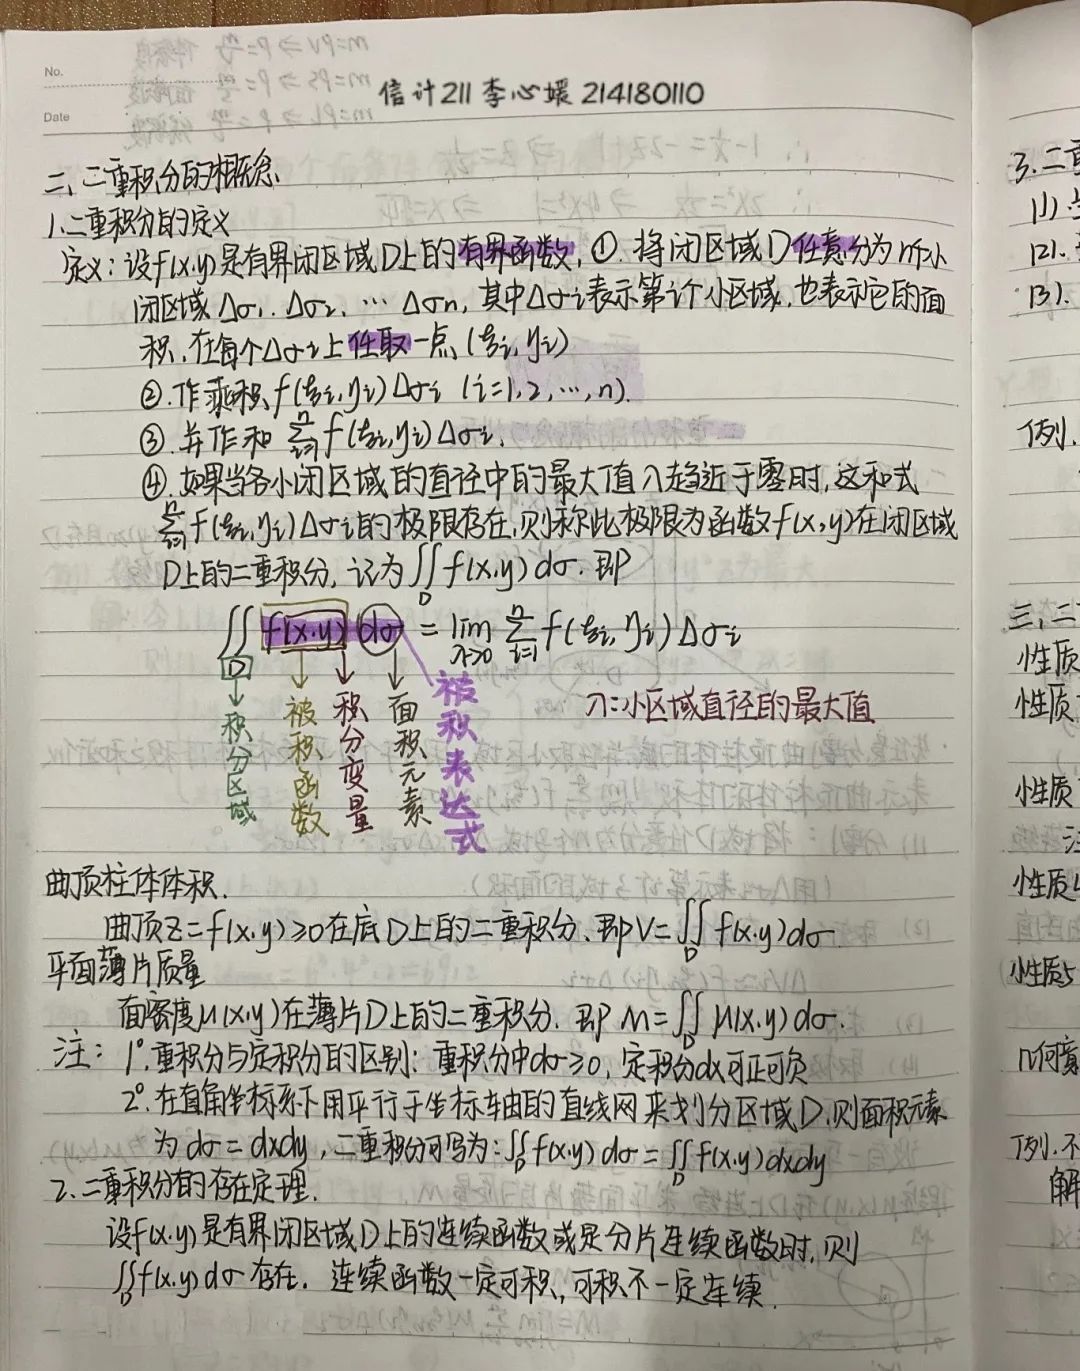 No.
Date
信计211 李心媛 214180110
二、二重积分的概念
1.二重积分的定义
定义：设f(x,y)是有界闭区域D上的有界函数，①.将闭区域D任意分为n个小
闭区域Δσ₁. Δσ₂, … Δσn, 其中Δσi表示第i个小区域,也表示它的面
积,在每个Δσi上任取一点(ξi,ηi)
②.作乘积f(ξi,ηi)Δσi (i=1,2,…,n).
③.并作和 ∑ⁿᵢ₌₁ f(ξi,ηi)Δσi.
④.如果当各小闭区域的直径中的最大值λ趋近于零时,这和式
∑ⁿᵢ₌₁ f(ξi,ηi)Δσi的极限存在,则称此极限为函数f(x,y)在闭区域
D上的二重积分,记为∬_D f(x,y)dσ.即
∬_D f(x,y)dσ = lim_{λ→0} ∑ⁿᵢ₌₁ f(ξi,ηi)Δσi
积分区域
被积函数
积分变量
面积元素
被积表达式
λ:小区域直径的最大值
曲顶柱体体积.
曲顶z=f(x,y)≥0在底D上的二重积分.即V=∬_D f(x,y)dσ
平面薄片质量
面密度μ(x,y)在薄片D上的二重积分.即M=∬_D μ(x,y)dσ.
注: 1°.重积分与定积分的区别: 重积分中dσ≥0, 定积分dx可正可负
2°.在直角坐标系下用平行于坐标轴的直线网来划分区域D.则面积元素
为dσ=dxdy,二重积分可写为:∬_D f(x,y)dσ=∬_D f(x,y)dxdy
2.二重积分的存在定理.
设f(x,y)是有界闭区域D上的连续函数或是分片连续函数时,则
∬_D f(x,y)dσ存在. 连续函数一定可积,可积不一定连续.
3.二重
(1)
(2).
(3).
例.
三、二
性质
性质
性质
注
性质4
性质5
几何意
例.不
解